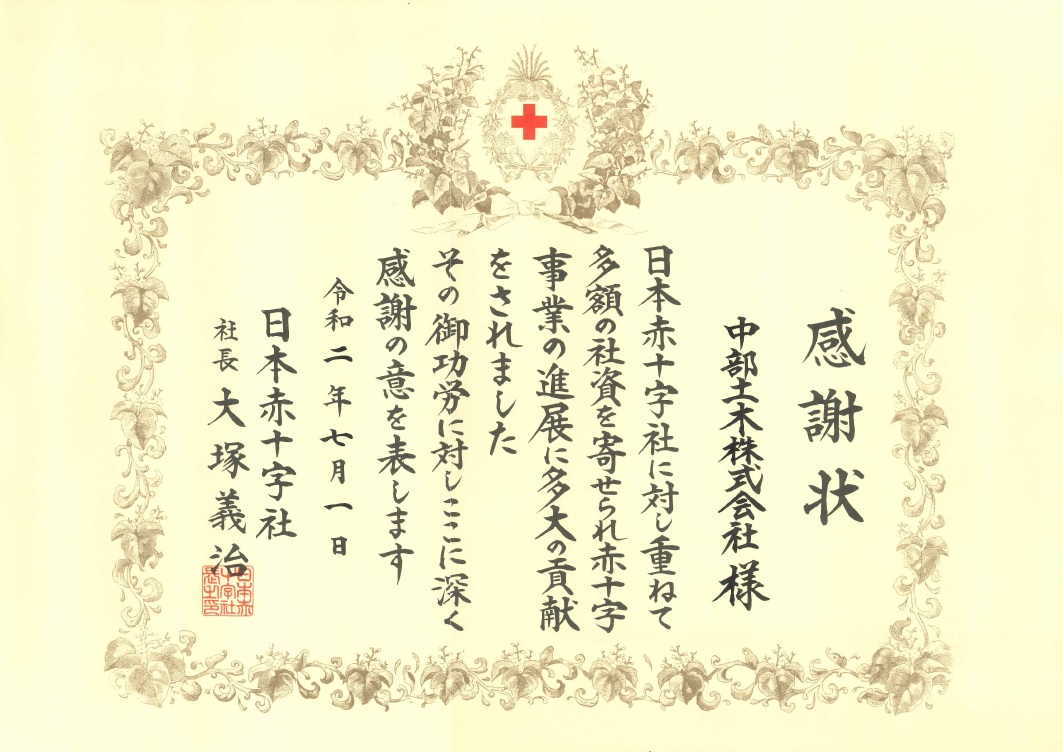 感謝状
中部土木株式会社様
日本赤十字社に対し重ねて
多額の社資を寄せられ赤十字
事業の進展に多大の貢献
をされました
その御功労に対しここに深く
感謝の意を表します
令和二年七月一日
日本赤十字社
社長 大塚義治
日本赤
十字社